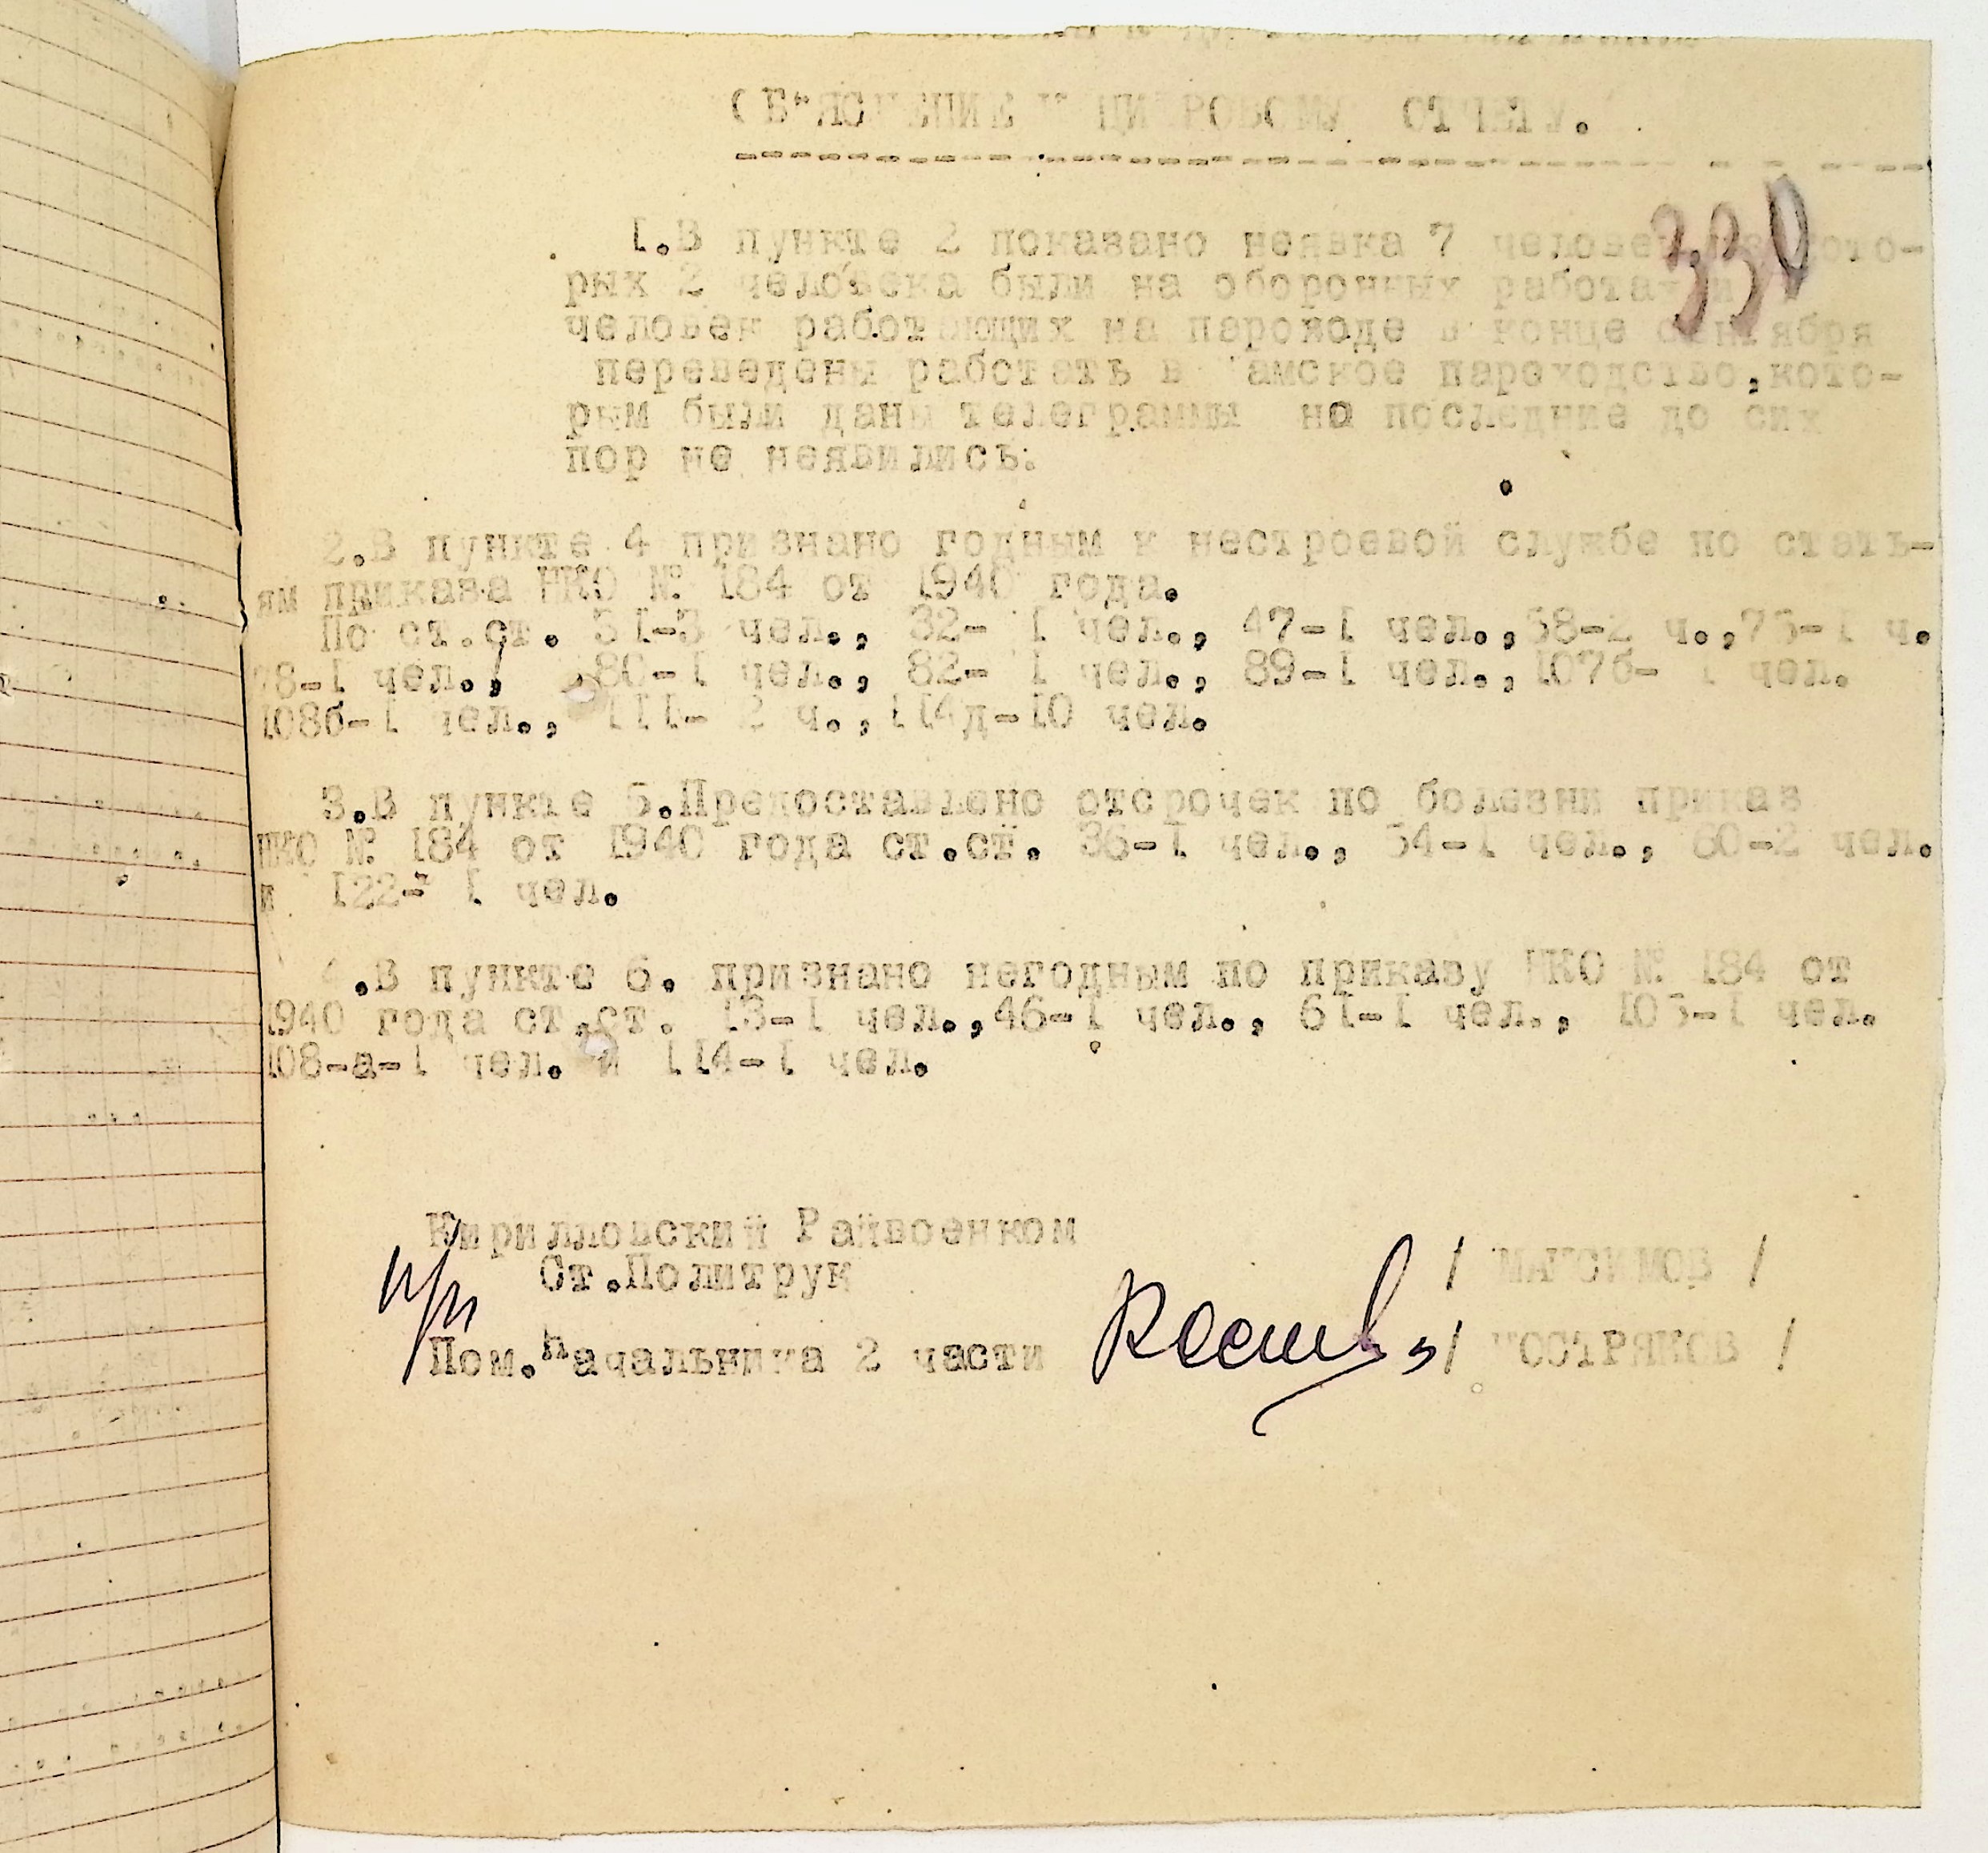 ОБ"ЯСНЕНИЕ К ЦИФРОВОМУ ОТЧЕТУ.
330
I.В пункте 2 показано неявка 7 человек из кото-
рых 2 человека были на оборонных работах и
человек работающих на пароходе в конце сентября
переведены работать в Камское пароходство,кото-
рым были даны телеграммы но последние до сих
пор не неявились.
2.В пункте 4 признано годным к нестроевой службе по стать-
ям приказа НКО № 184 от 1940 года.
По ст.ст. 31-3 чел., 32- I чел., 47-I чел., 2 ч., I ч.
78-I чел., 80-I чел., 82- I чел., 89-I чел.,107б- I чел.
108б-I чел., III- 2 ч.,II4д-IO чел.
3.В пункте 5.Предоставлено отсрочек по болезни приказ
НКО № 184 от 1940 года ст.ст. 36-I чел., 54-I чел., 60-2 чел.
и 122- I чел.
4.В пункте 6. признано негодным по приказу НКО № 184 от
1940 года ст.ст. 13-I чел.,46-I чел., 61-I чел., I чел.
108-а-I чел. и II4-I чел.
Кирилловский Райвоенком
Ст.Политрук / МАКСИМОВ /
Пом.начальника 2 части / КОСТРЯКОВ /